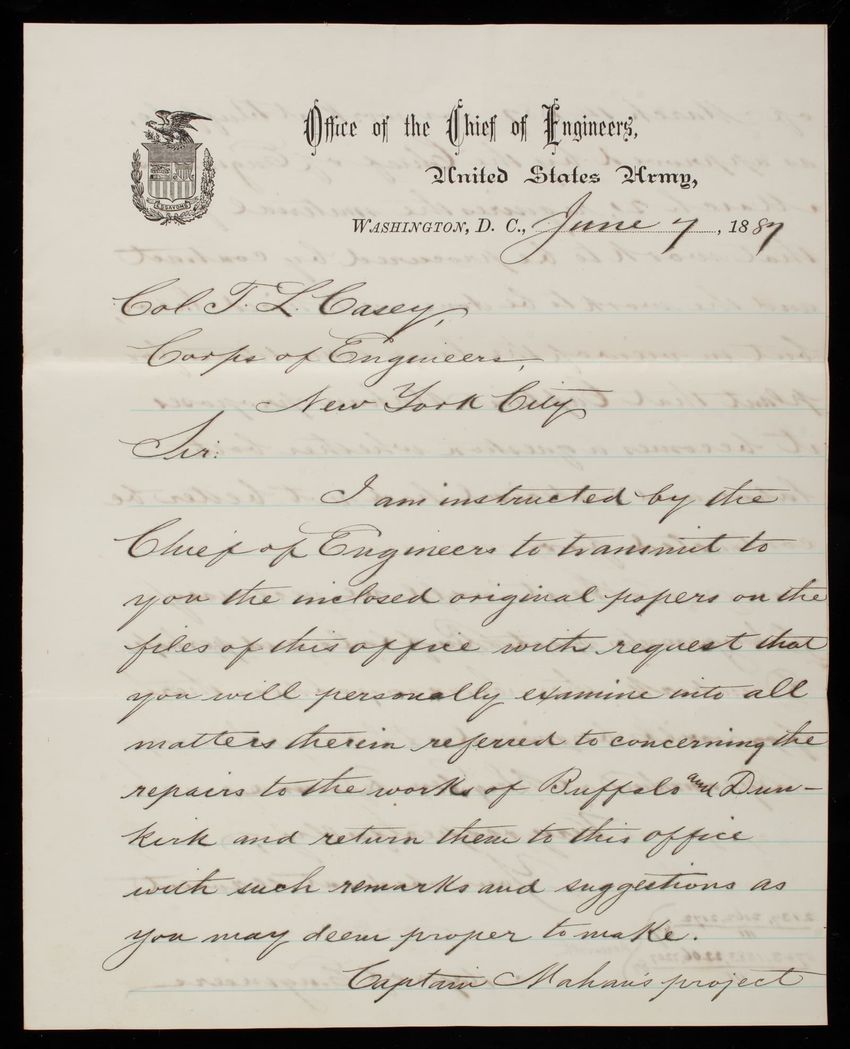 Office of the Chief of Engineers,
United States Army,
WASHINGTON, D. C., June 7, 1887
Col T. L. Casey,
Corps of Engineers,
New York City
Sir:
I am instructed by the
Chief of Engineers to transmit to
you the inclosed original papers on the
files of this office with request that
you will personally examine into all
matters therein referred to concerning the
repairs to the works of Buffalo and Dun-
kirk and return them to this office
with such remarks and suggestions as
you may deem proper to make.
Captain Mahan's project